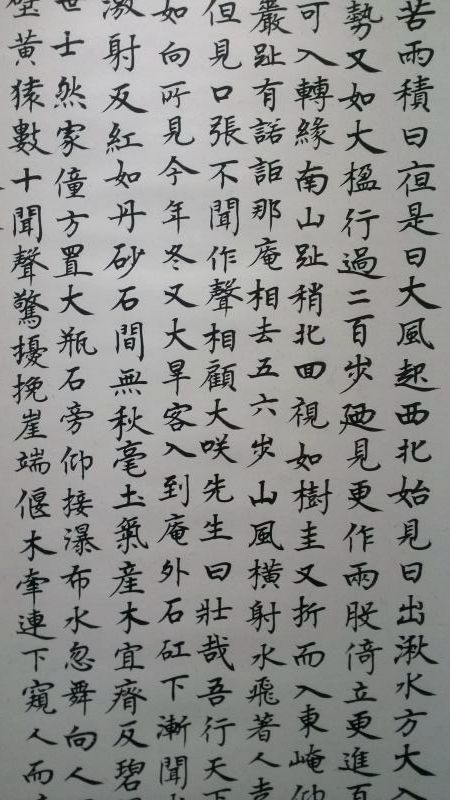 苦雨積日夜是日大風起西北始見日出湫水方大入
勢又如大楹行過二百步廼見更作兩股倚立更進百
可入轉緣南山趾稍北回視如樹圭又折而入東崦仰
嚴趾有諾詎那庵相去五六步山風橫射水飛著人走
但見口張不聞作聲相顧大咲先生曰壯哉吾行天下
如向所見今年冬又大旱客入到庵外石矼下漸聞
激射反紅如丹砂石間無秋毫土氣產木宜瘠反碧
世士然家僮方置大瓶石旁仰接瀑布水忽舞向人
壁黃猿數十聞聲驚擾挽崖端偃木牽連下窺人而